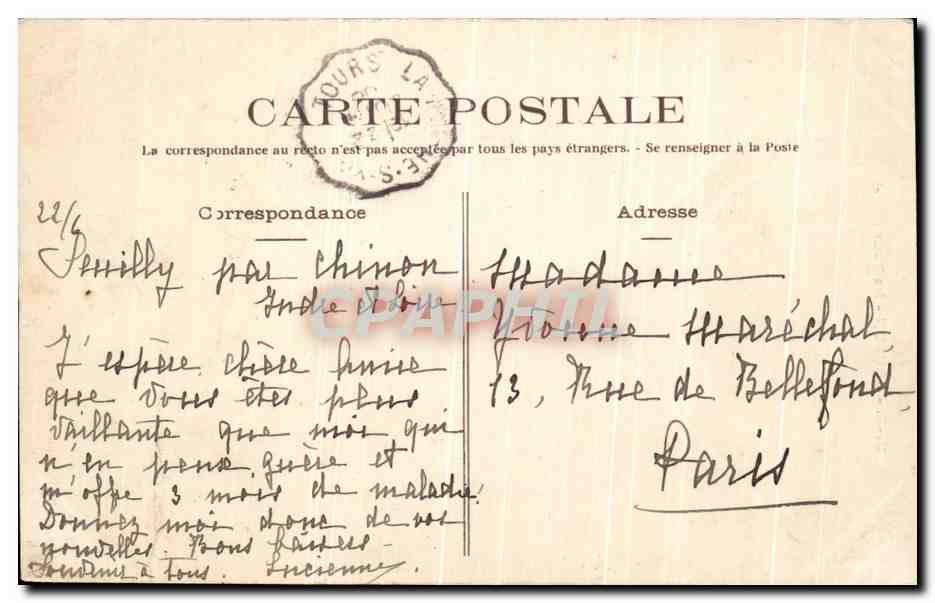 TOURS LA
CARTE POSTALE
La correspondance au recto n'est pas acceptée par tous les pays étrangers. - Se renseigner à la Poste
Correspondance
22/6
Seuilly par Chinon
Indre et Loire
J'espère chère amie
que vous êtes plus
vaillante que moi qui
n'en peux guère et
m'offre 3 mois de maladie!
Donnez moi donc de vos
nouvelles. Bons baisers
à tous. Lucienne.
Adresse
Madame
Yvonne Maréchal
13, Rue de Bellefond,
Paris
CPAPHIL